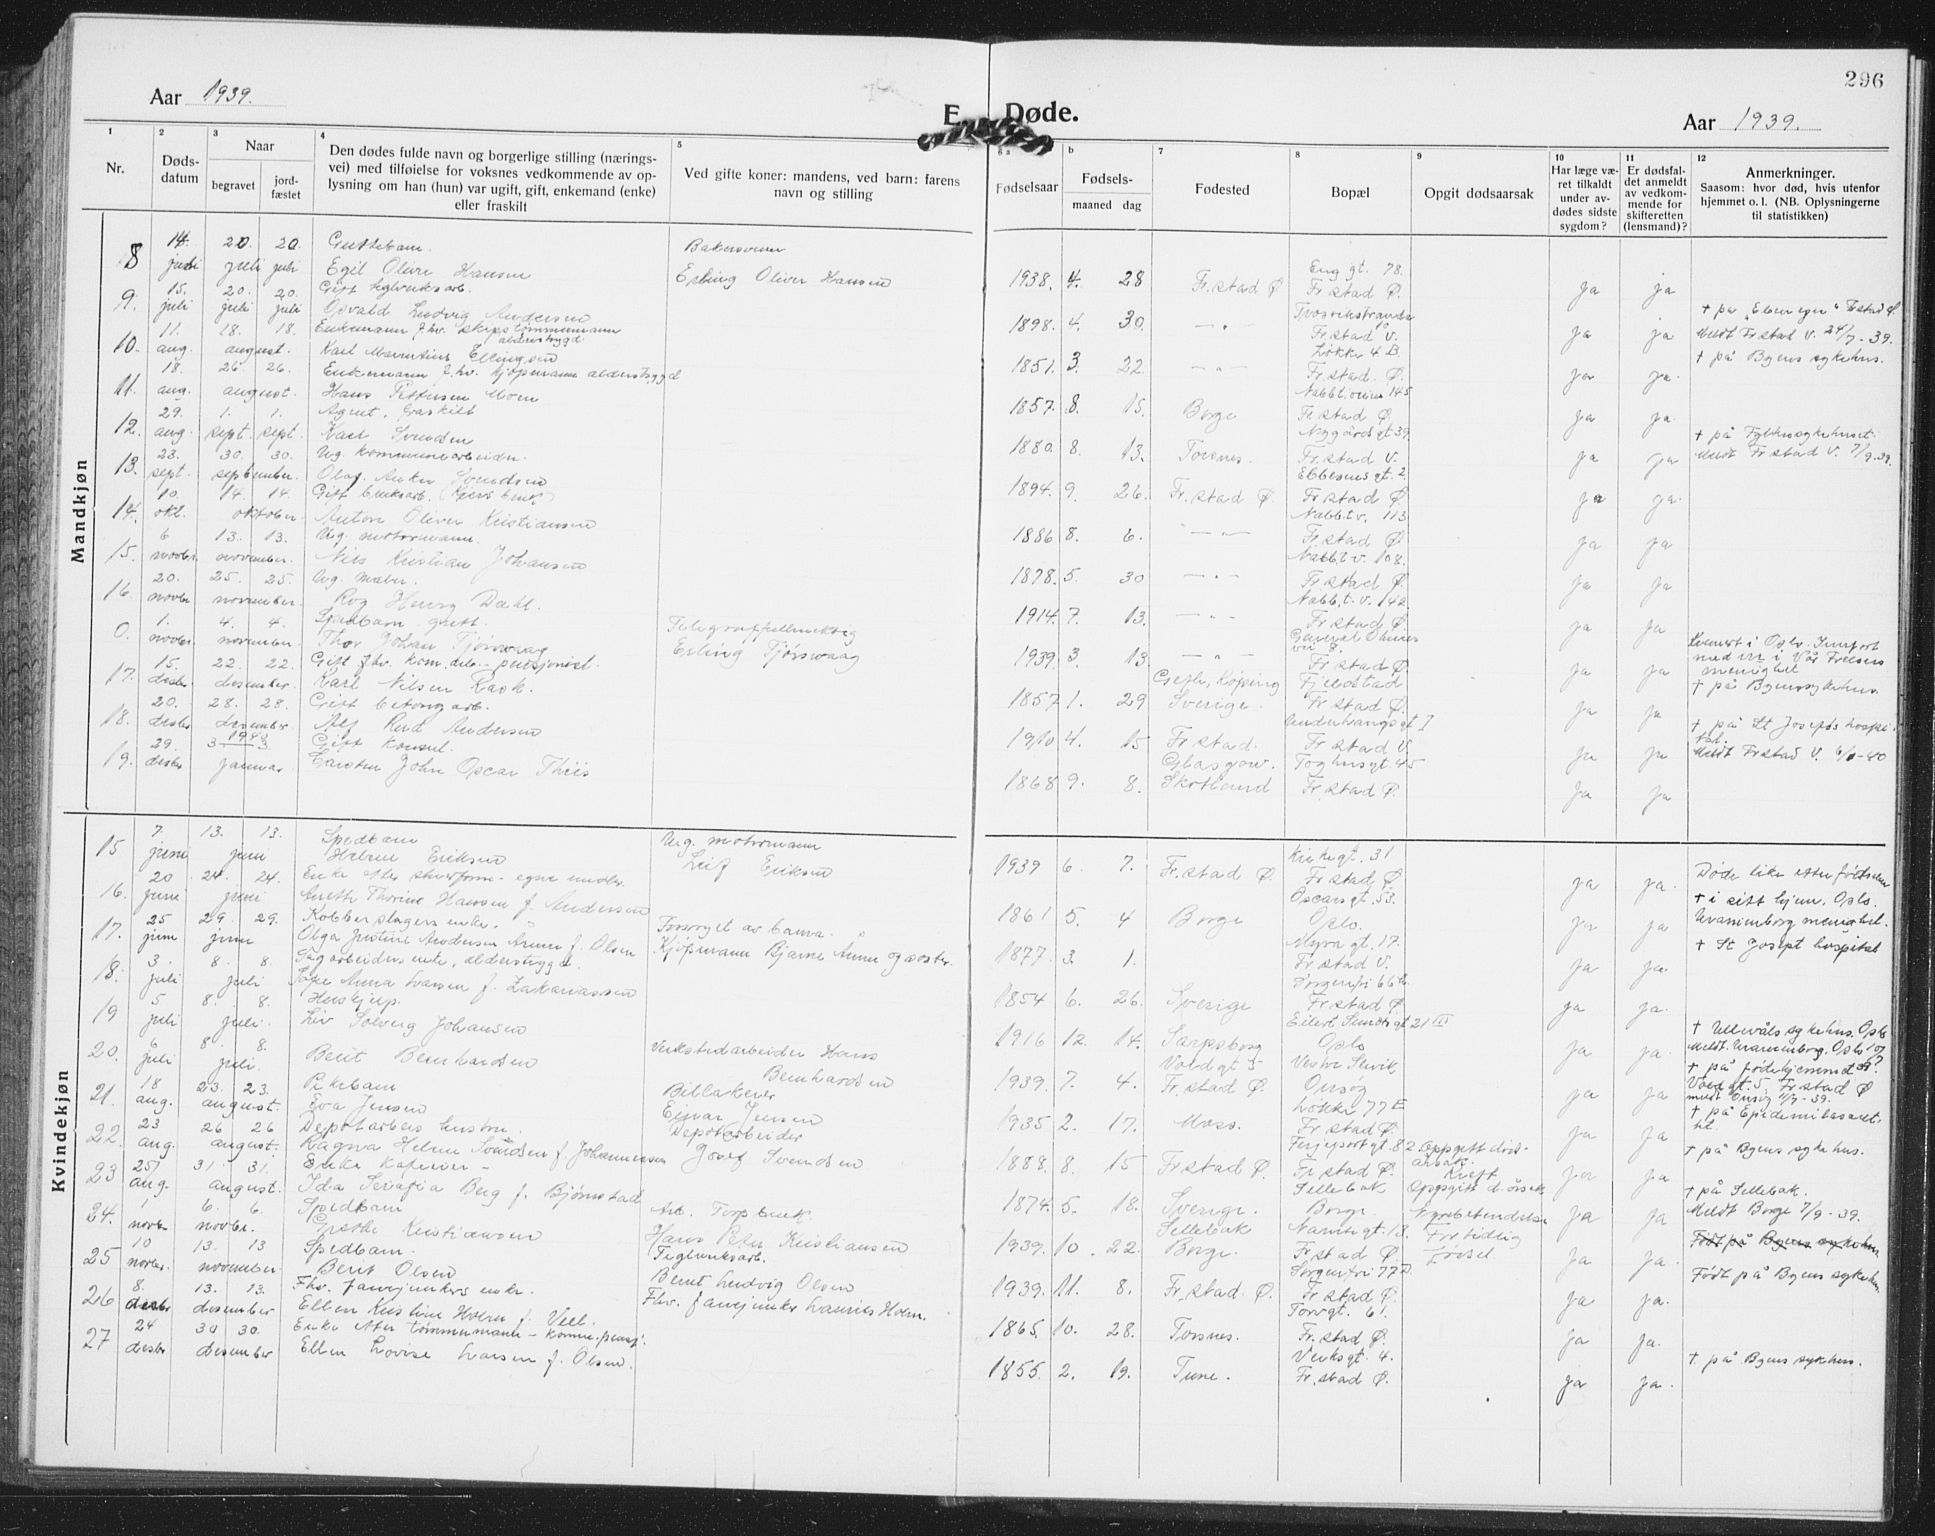 296
Aar 1939.
E. Døde.
Aar 1939.
1 Nr.
2 Døds-datum
3 Naar
begravet
jord-fæstet
4 Den dødes fulde navn og borgerlige stilling (nærings-
vei) med tilføielse for voksnes vedkommende av op-
lysning om han (hun) var ugift, gift, enkemand (enke)
eller fraskilt
5 Ved gifte koner: mandens, ved barn: farens
navn og stilling
6 a Fødselsaar
b Fødsels-
maaned dag
7 Fødested
8 Bopæl
9 Opgit dødsaarsak
10 Har læge væ-
ret tilkaldt
under av-
dødes sidste
sygdom?
11 Er dødsfal-
det anmeldt
av vedkom-
mende for
skifteretten
(lensmand)?
12 Anmerkninger.
Saasom: hvor død, hvis utenfor
hjemmet o. l. (NB. Oplysningerne
til statistikken)
Mandkjøn
8 14. juli 20. juli 20. juli Guttebarn. Egil Oliver Hansen Bakersvenn Erling Oliver Hansen 1938. 4. 28 Fr.stad Ø Enggt. 78. Fr stad Ø. ja ja
9. 15. juli 20. juli 20. juli Gift teglverksarb. Osvald Ludvig Andersen 1898. 4. 30. — " — Fr.stad V. ja ja Meldt Fr stad V. 24/7-39.
10. 11. aug. 18. 18. august. Enkemann fhv. skipstømmermann alderstrygd. Karl Marentius Ellingsen 1851. 3. 22. — " — Løkke 4 B. Fr.stad. Ø. ja ja. + på Byens sykehus.
11. 18. aug. 26 26. august. Enkemann f.hv. kjøpmann alderstrygd Hans Pettersen Moen 1857. 8. 15. Borge 145 Fr stad Ø. ja ja.
12. 29. aug. 1. sept. 1. sept. Agent, fraskilt Karl Svendsen 1880. 8. 13. Torsnes. Nygårdsgt 39 Fr.stad V. ja ja + på Fylkessykehuset. Meldt Fr stad V. 7/9.39.
13. 23. sept. 30. 30. september. Ug. kommunearbeider. Olaf Anker Svendsen 1894. 9. 26. Fr.stad Ø. Ebbesensgt. 2. Fr stad Ø ja ja.
14. 10. okt. 14. 14. oktober. Gift bruksarb. Anton Oliver Kristiansen 1886 8. 6. — " — Nabbtv. 113 Fr.stad Ø ja ja
15. 6 novbr. 13. 13. november. Ug. motormann. Nils Kristian Johansen 1878. 5. 30 — " — Nabbtv. 108. Fr stad Ø ja ja
16. 20. novbr 25. 25. november. Ug. maler. Roy Henry Dahl. 1914. 7. 13. — " — Nabb.t.v. 142. Fr.stad Ø ja ja
0. 1. novbr. 4. 4. november. Spedbarn gutt. Thor Johan Tjørswaag Telegraffullmektig Erling Tjørswaag 1939. 3. 13. — " — Fr stad Ø. ja ja
17. 15. desbr 22. 22. desember. Gift fhv. kom.arb. - pensjonist. Karl Nilsen Rask. 1857 1. 29 Köping Sverige. Fjeldstad Fr stad Ø. ja ja + på Byens sykehus.
18. 20. desbr 28. 28. desember Gift betongarb. Alf Rud Andersen 1910 4. 15 Fr stad. Fr stad V. ja ja + på St Josefs hospital. Meldt Fr stad V. 6/1-40
19. 29. desbr 1940 3 3. januar. Gift konsul. Carsten John Oscar Thiis 1868 9. 8. Glasgow. Skotland Toghusgt. 45 Fr. stad Ø. ja ja
Kvindekjøn
15 7. juni 13. 13. juni Spedbarn Helene Eriksen Ug. motormann Leif Eriksen 1939 6. 7. Fr.stad Ø. Kirkegt. 31 Fr stad Ø. ja ja. Døde like etter fødselen
16. 20 juni 24. 24. juni Anette Thorine Hansen f. Andersen 1861 5. 4 Borge Oscarsgt. 53. Oslo. ja ja + i sitt hjem, Oslo. Uranienborg menighet.
17. 25 juni 29 29. juni Kobberslagers enke. Olga Justine Andersen Årum f. Olsen Forsørget av barna. Kjøpmann Bjarne Årum og søster. 1877. 3. 1. Myragt. 17. Fr stad V. ja ja. + St Josept hospital
18. 3. juli 8. 8. juli Sagarbeiders enke, alderstrygd. Anna Larsen f. Zakariassen 1854 6. 26. Sverige Fr.stad Ø. ja ja.
19 5 juli 8. 8. juli. Hushjelp. Liv Solveig Johansen 1916 12. 14. Sarpsborg Eilert Sundtsgt 21 III Oslo ja ja. + Ullevåls sykehus. Oslo Meldt. Uranienborg. Oslo
20. 6 juli 8. 8. juli. Berit Bernhardsen Verkstedarbeider Hans Bernhardsen 1939. 7. 4. Voldgt 5 Fr. stad Ø. Onsøy ja ja + på fødehjemmet Voldgt. 5. Fr stad Ø meldt Onsøy
21. 18 aug. 23. 23. august. Pikebarn Eva Jensen Billakerer Einar Jensen 1935 2. 17. Moss. Løkke 77 E Fr stad Ø ja ja + på Epidemilasarettet.
22. 23 aug. 26 26 august. Depotarbeiders hustru. Ragna Helene Svendsen f. Johannessen Depotarbeider Josef Svendsen 1888. 8. 15 Fr stad Ø. Ferjeportgt. 82 Fr stad Ø. Oppgitt døds-årsak. Kreft ja ja + på Byens sykehus.
23 25 aug. 31 31. august. Ida Serafia Berg f. Bjørnstad 1874. 5. 18. Sverige. Sellebak Borge. Oppgitt d. årsak ja ja + på Sellebak. Meldt Borge 7/9-39.
24. 1 novbr. 6. 6. novbr. Spedbarn Grethe Kristiansen Arb. Torp bruk Hans Peter Kristiansen 1939. 10. 22. Sellebak Borge. Fr stad Ø For tidlig fødsel ja ja. Født på Byens sykehus
25 10 novbr. 13. 13 november. Spedbarn. Berit Olsen Teglverksarb. Bernt Ludvig Olsen 1939. 11. 8. Fr.stad. Ø. Sorgenfri 77 D. Fr stad Ø. ja ja. Født på Byens sykehus
26 8. desbr 13. 13. desember Fhv. fanejunkers enke. Ellen Kristine Holm f. Vell. Fhv. fanejunker Laurits Holm. 1865. 10. 28. Torsnes. Torvgt. 61. Fr.stad Ø. ja ja.
27 24 desbr 30 30. desember Enke etter tømmermann - komm.pensj. Ellen Lovise Larsen f. Olsen. 1855. 2. 19. Tune. Verksgt. 4. Fr.stad Ø. ja ja. + på Byens sykehus.